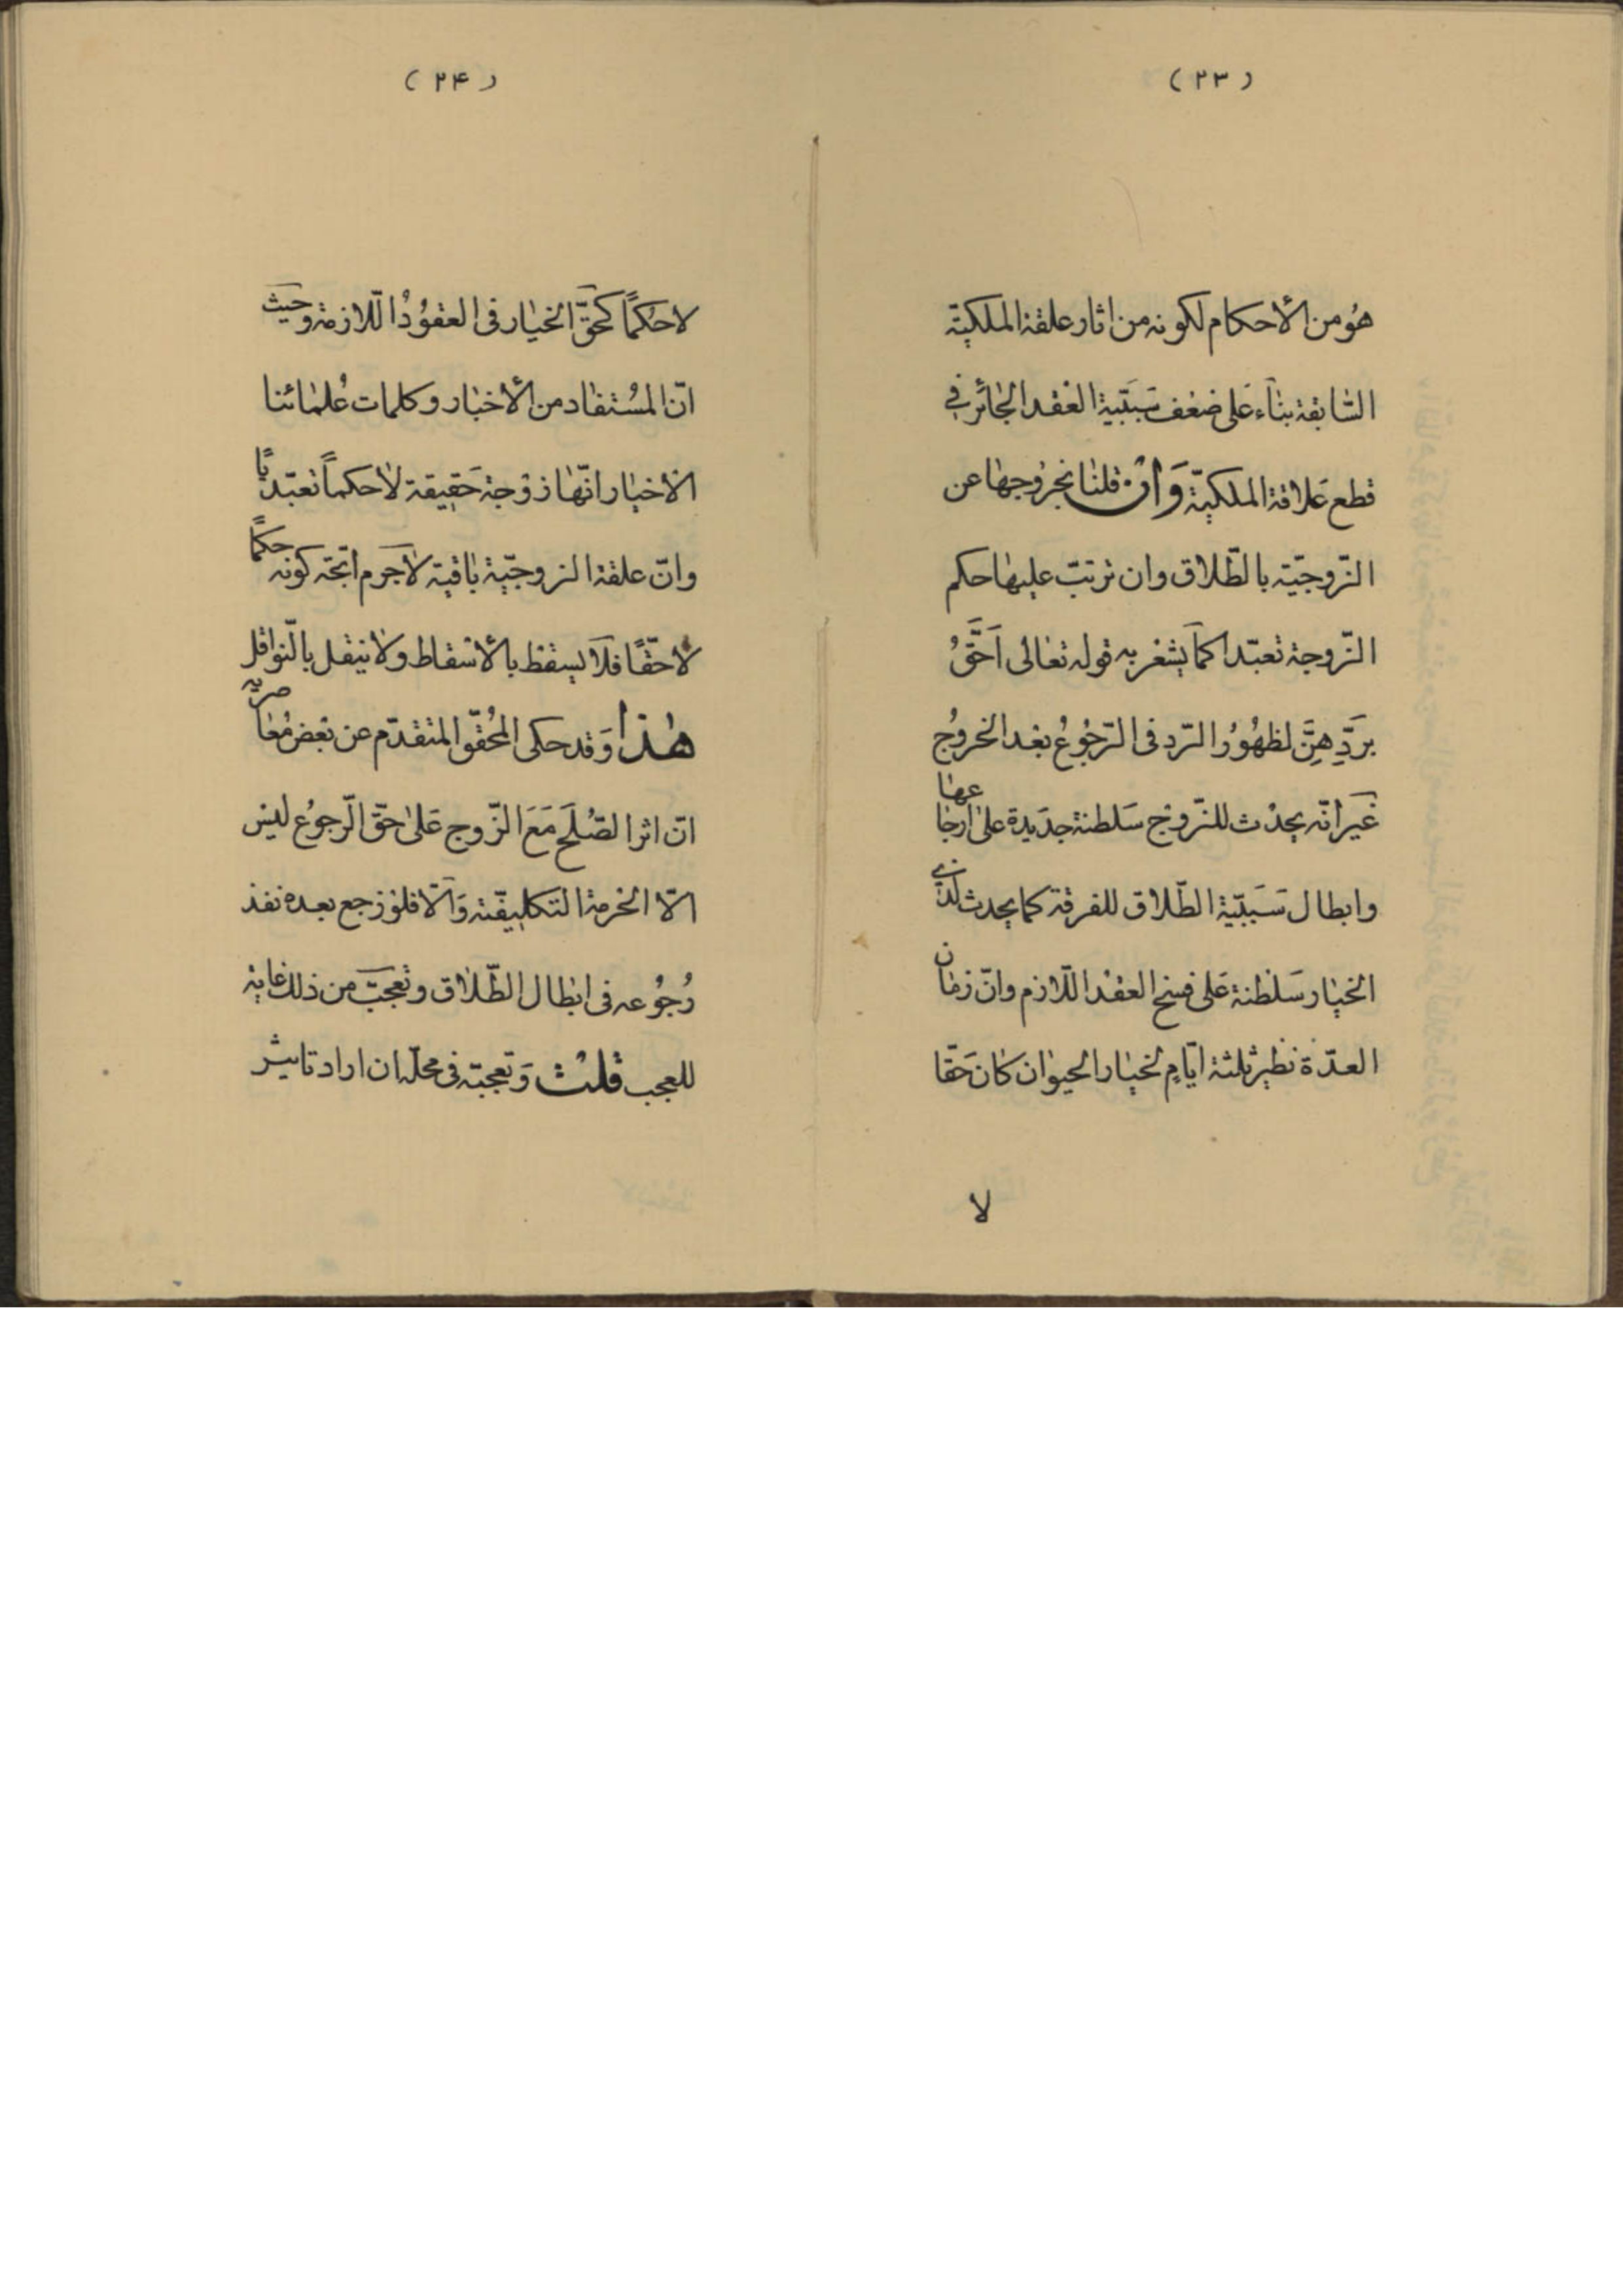 (۲۳)
هُو من الأحكام لكونه من اثار علقة الملكيّة
السّابقة بناء على ضعف سَبَبيّة العقد الجائز في
قطع عَلاقة الملكيّة وَان قلنا بخروجها عن
الزّوجيّة بالطّلاق وان ترتبّ عليها حكم
الزّوجة تعبّدا كما يشعر به قوله تعالى اَحَقُّ
بِرَدِّهِنَّ لظهُور الرّد فى الرّجُوعُ بعد الخروُج
غَير انّه يحدُث للزّوج سَلطنة جدَيدة على ارجاعها
وابطال سَببيّة الطّلاق للفرقة كما يحدث لذى
الخيار سَلطنة عَلى فسخ العقد اللّازم وانّ زمان
العدّة نظير ثلثة ايّامٍ لخيار الحيوان كانَ حَقّا
لا
(۲۴)
لا حكمًا كحقّ الخيار فى العقوُد اللّازمة وحَيث
انّ المسُتفاد من الأخبار وكلمات عُلمائنا
الاخيار انّها زوجة حَقيقة لا حكماً تعبّديًا
وانّ علقة الزوجيّة باقية لاجَرم اتّجه كونه حكمًا
لا حقّا فلا يسقط بالأسقاط ولا ينتقل بالنّواقل
هٰذا وَقد حكى المحُقّق المتقدّم عن بَعض مُعاصريه
انّ اثر الصّلح مَعَ الزّوج عَلى حقّ الرّجوُع ليس
الّا الحُرمة التكليفيّة وَالّا فلوُ رجع بعده نفذ
رُجوُعه فى ابطال الطّلاق وتعجبّ من ذلك غاية
للعجب قلت وَتعجبّه فى محلّه ان اراد تاثير